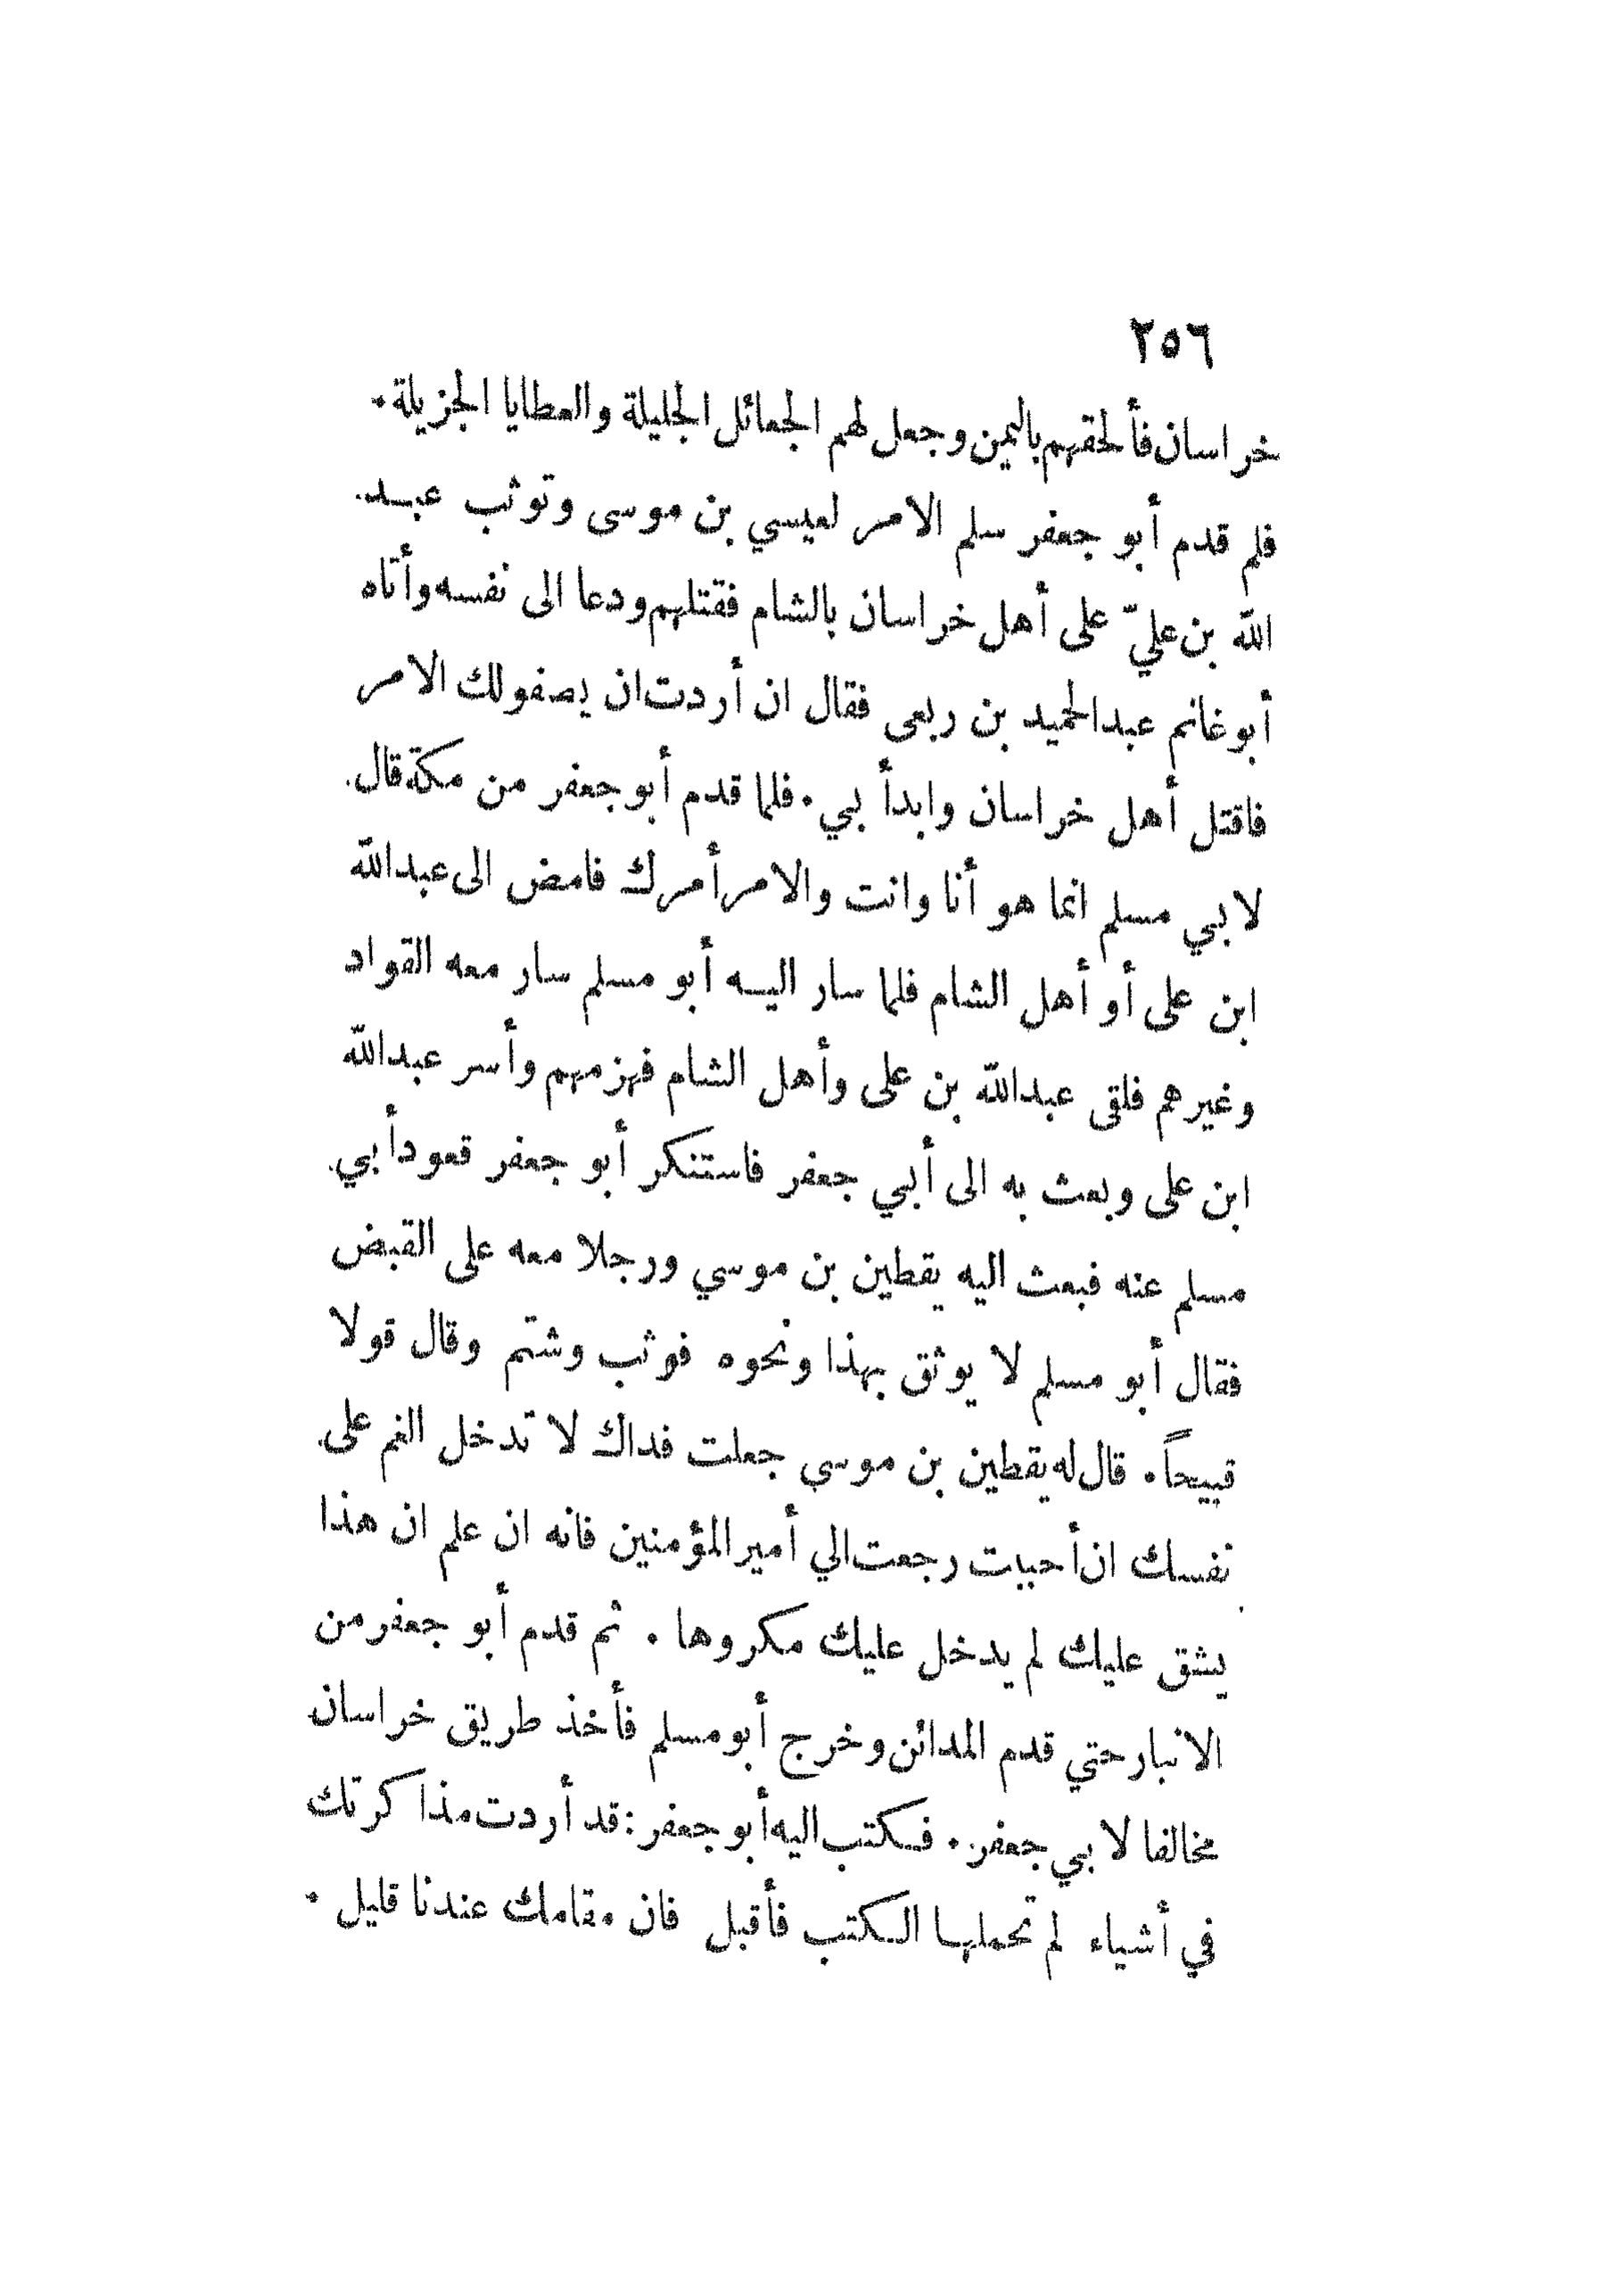 ٢٥٦
خراسان فألحقهم باليمن وجعل لهم الجعائل الجليلة والعطايا الجزيلة.
فلم قدم أبو جعفر سلم الامر لعيسي بن موسى وتوثب عبد
الله بن عليّ على أهل خراسان بالشام فقتلهم ودعا الى نفسه وأتاه
أبو غانم عبد الحميد بن ربعى فقال ان أردت ان يصفو لك الامر
فاقتل أهل خراسان وابدأ بي. فلما قدم أبو جعفر من مكة قال
لابي مسلم انما هو أنا وانت والامر أمرك فامض الى عبد الله
ابن على أو أهل الشام فلما سار اليه أبو مسلم سار معه القواد
وغيرهم فلقى عبد الله بن على وأهل الشام فهزمهم وأسر عبد الله
ابن على وبعث به الى أبي جعفر فاستنكر أبو جعفر قعود أبي
مسلم عنه فبعث اليه يقطين بن موسي ورجلا معه على القبض
فقال أبو مسلم لا يوثق بهذا ونحوه فوثب وشتم وقال قولا
قبيحاً. قال له يقطين بن موسي جعلت فداك لا تدخل الغم على
نفسك ان أحببت رجعت الي أمير المؤمنين فانه ان علم ان هذا
يشق عليك لم يدخل عليك مكروها. ثم قدم أبو جعفر من
الانبار حتي قدم المدائن وخرج أبو مسلم فأخذ طريق خراسان
مخالفا لابي جعفر. فكتب اليه أبو جعفر: قد أردت مذاكرتك
في أشياء لم تحملها الكتب فأقبل فان مقامك عندنا قليل.